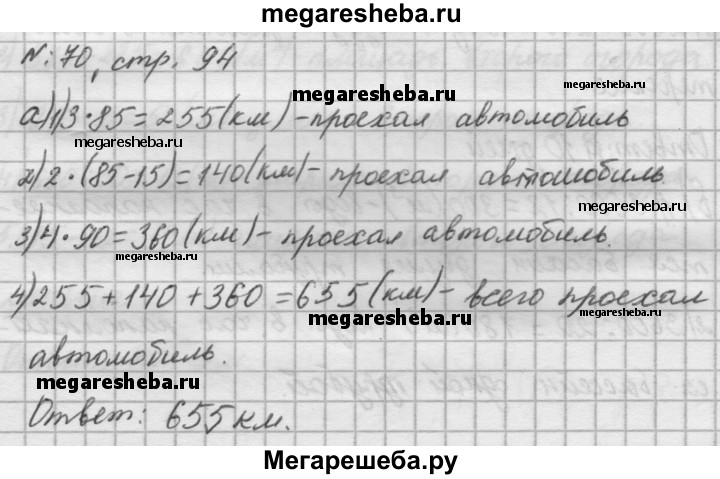 megaresheba.ru
N:70, стр. 94
megaresheba.ru
а)1)3·85=255(км)-проехал автомобиль
megaresheba.ru
megaresheba.ru
2)2·(85-15)=140(км)-проехал автомобиль.
megaresheba.ru
3)4·90=360(км)-проехал автомобиль.
megaresheba.ru
4)255+140+360=655(км)-всего проехал
megaresheba.ru
megaresheba.ru
автомобиль.
megaresheba.ru
Ответ: 655км.
Мегарешеба.ру